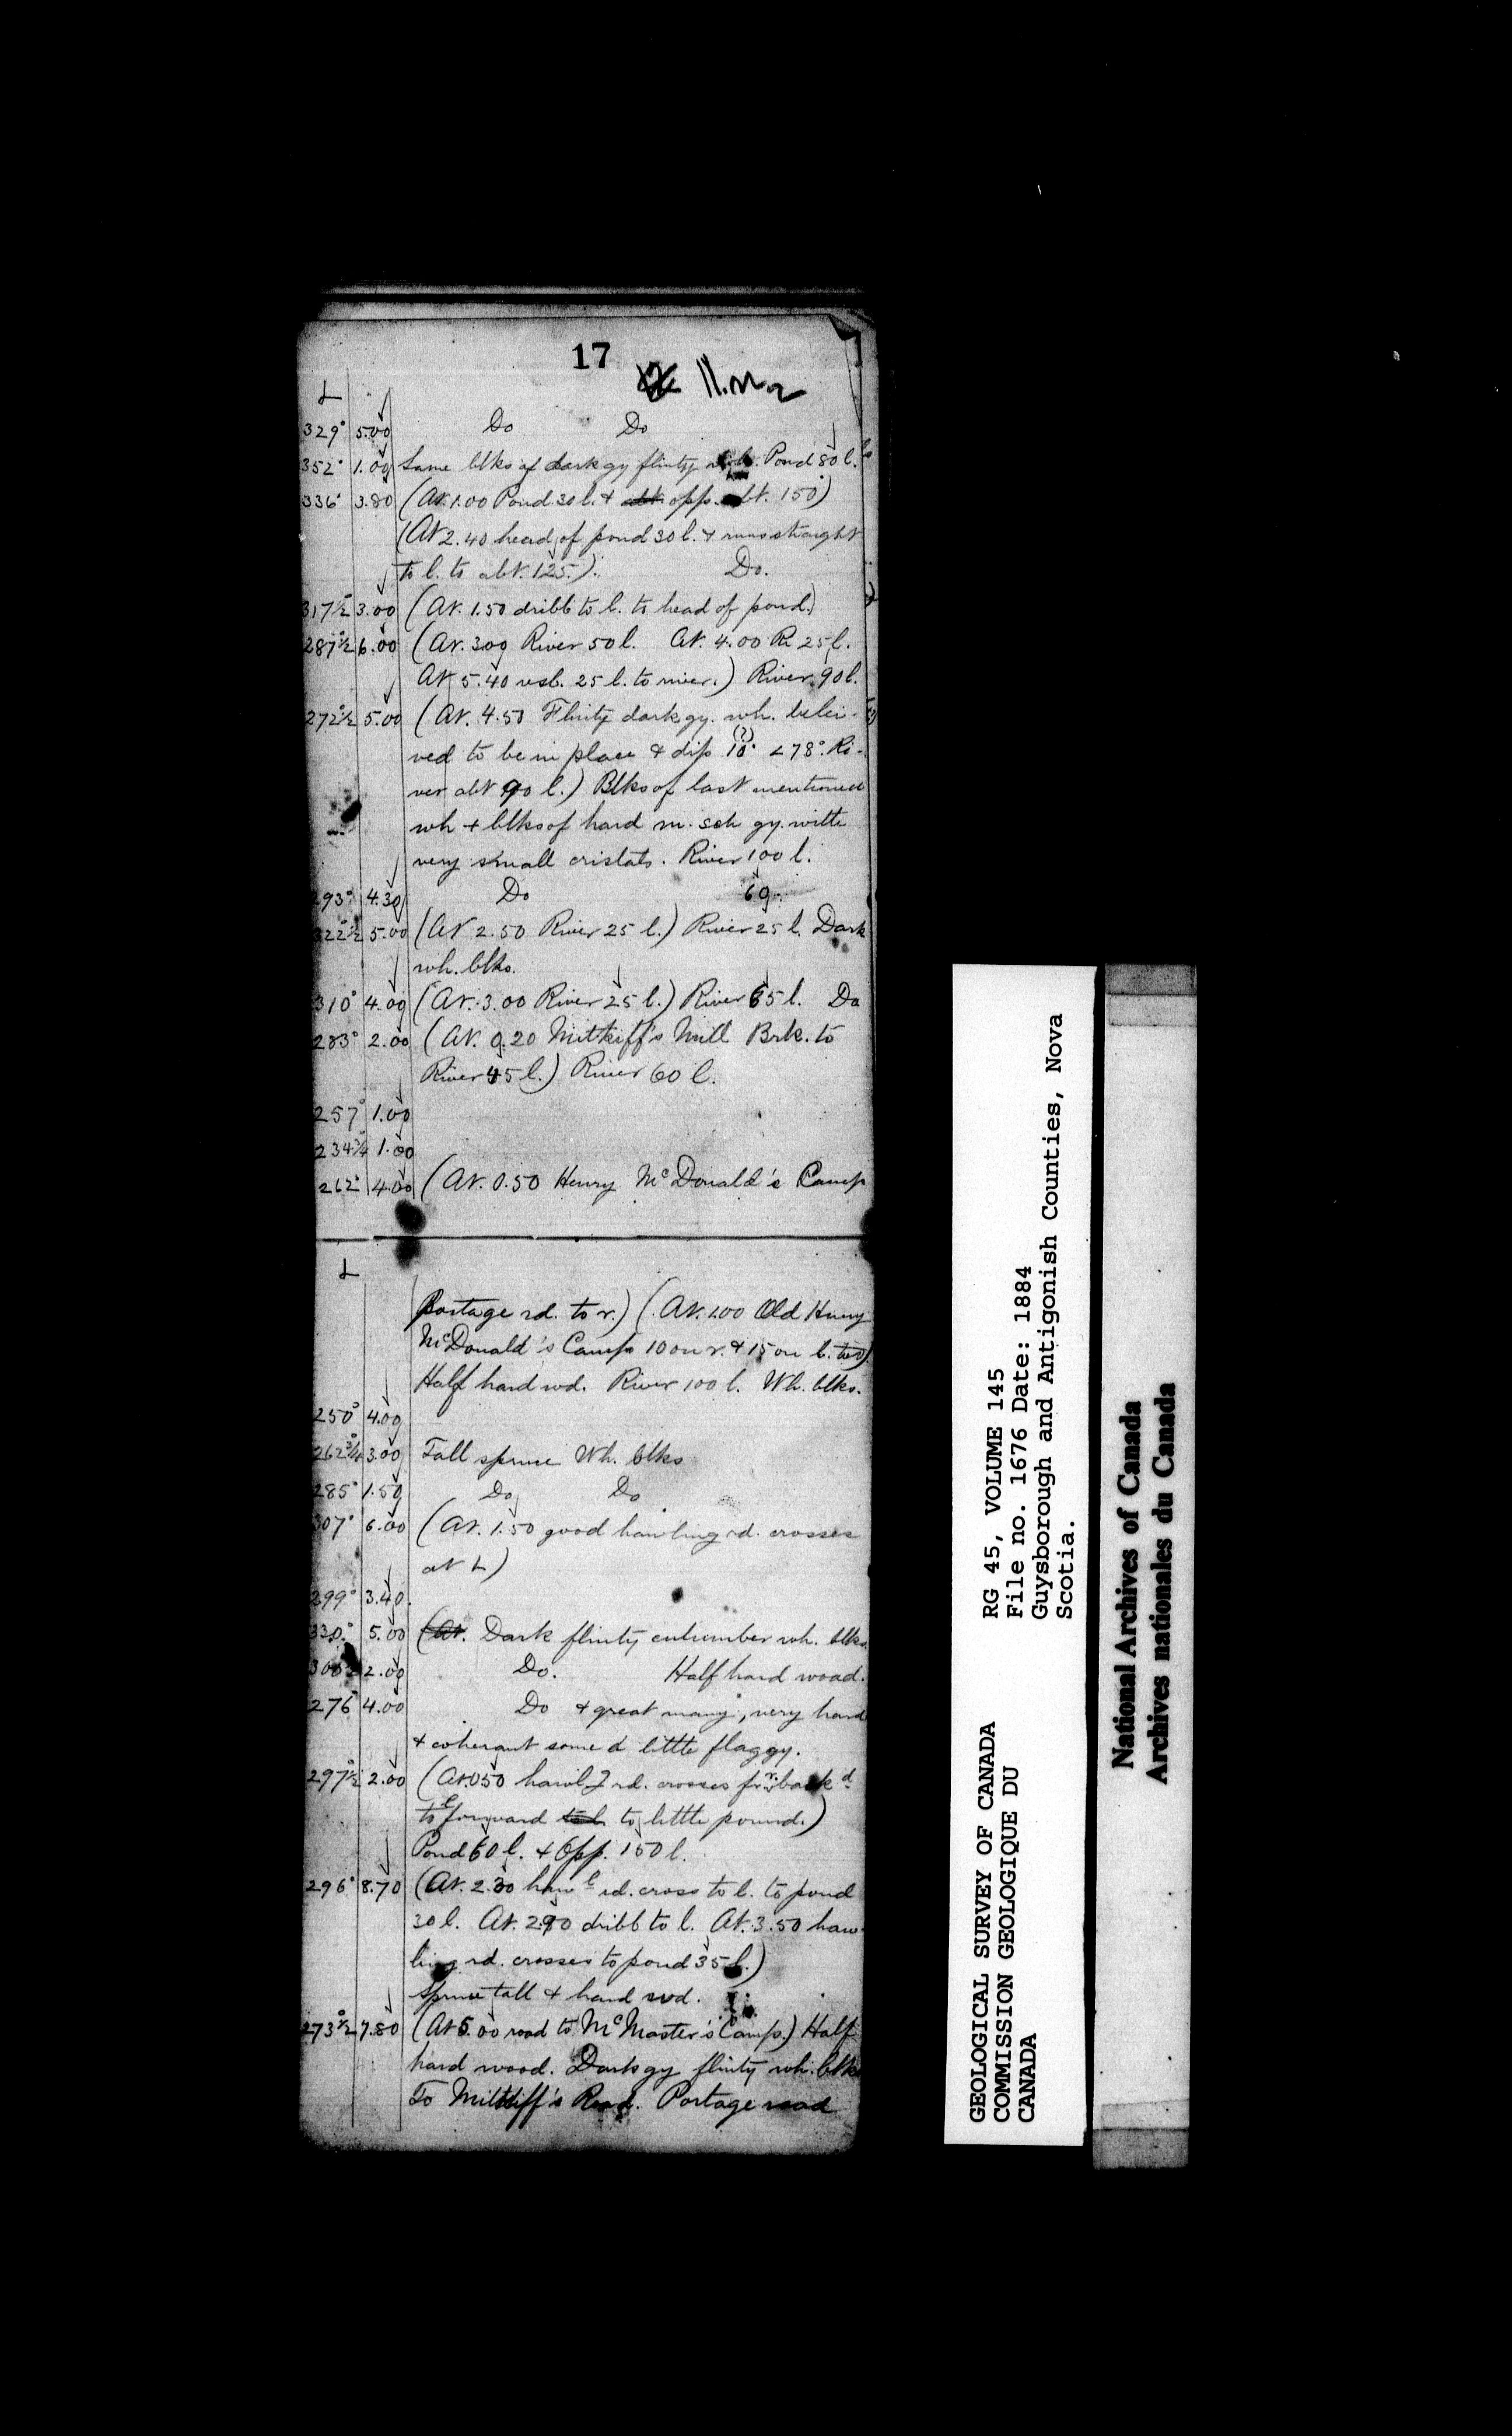 17
11.
L
329° 5.00 Do Do
352° 1.00 Same blks of dark gy flinty wh. Pond 80 l.
336° 3.80 (At. 1.00 Pond 30 l. & opp. abt. 150)
(At 2.40 head of pond 30 l. & runs straight
to l. to abt. 125.) Do.
317½° 3.00 (At. 1.50 dribb to l. to head of pond.)
287½° 6.00 (At. 300 River 50 l. At. 4.00 R. 25 l.
At 5.40 resb. 25 l. to river.) River 90 l.
272½° 5.00 (At. 4.50 Flinty dark gy. wh. belei-
ved to be in place & dip 10° (?) <78°. Ri-
ver abt 90 l.) Blks of last mentioned
wh & blks of hard m. sch gy. with
very small cristals. River 100 l.
293° 4.30 Do 60
322½° 5.00 (At 2.50 River 25 l.) River 25 l. Dark
wh. blks.
310° 4.00 (At. 3.00 River 25 l.) River 65 l. Do
283° 2.00 (At. 0.20 Mitkiff's Mill Brk. to
River 45 l.) River 60 l.
257° 1.00
234¾ 1.00
262° 4.00 (At. 0.50 Henry McDonald's Camp
L
Portage rd. to r.) (At. 1.00 Old Henry
McDonald's Camp 10 on r. & 15 on l. two)
Half hard wd. River 100 l. Wh. blks.
250° 4.00
262¾° 3.00 Tall spruce Wh. blks
285° 1.50 Do Do
307° 6.00 (At. 1.50 good hawling rd. crosses
at L)
299° 3.40
330° 5.00 (At. Dark flinty cucumber wh. blks.
300 2.00 Do. Half hard wood.
276 4.00 Do & great many, very hard
& coherant some d little flaggy.
297½° 2.00 (At 050 hawl.g rd. crosses fr. r. backd
to l forward to l to little pound.)
Pond 60 l. & Opp. 150 l.
296° 8.70 (At. 2.30 haw.g rd. cross to l. to pond
30 l. At. 290 dribb to l. At. 3.50 haw-
ling rd. crosses to pond 35 l.)
Spruce tall & hard wd.
273½° 7.80 (At 5.00 road to McMaster's Camp.) Half
hard wood. Dark gy flinty wh. blks
To Mitkiff's Road. Portage road
GEOLOGICAL SURVEY OF CANADA
COMMISSION GEOLOGIQUE DU
CANADA
RG 45, VOLUME 145
File no. 1676 Date: 1884
Guysborough and Antigonish Counties, Nova
Scotia.
National Archives of Canada
Archives nationales du Canada